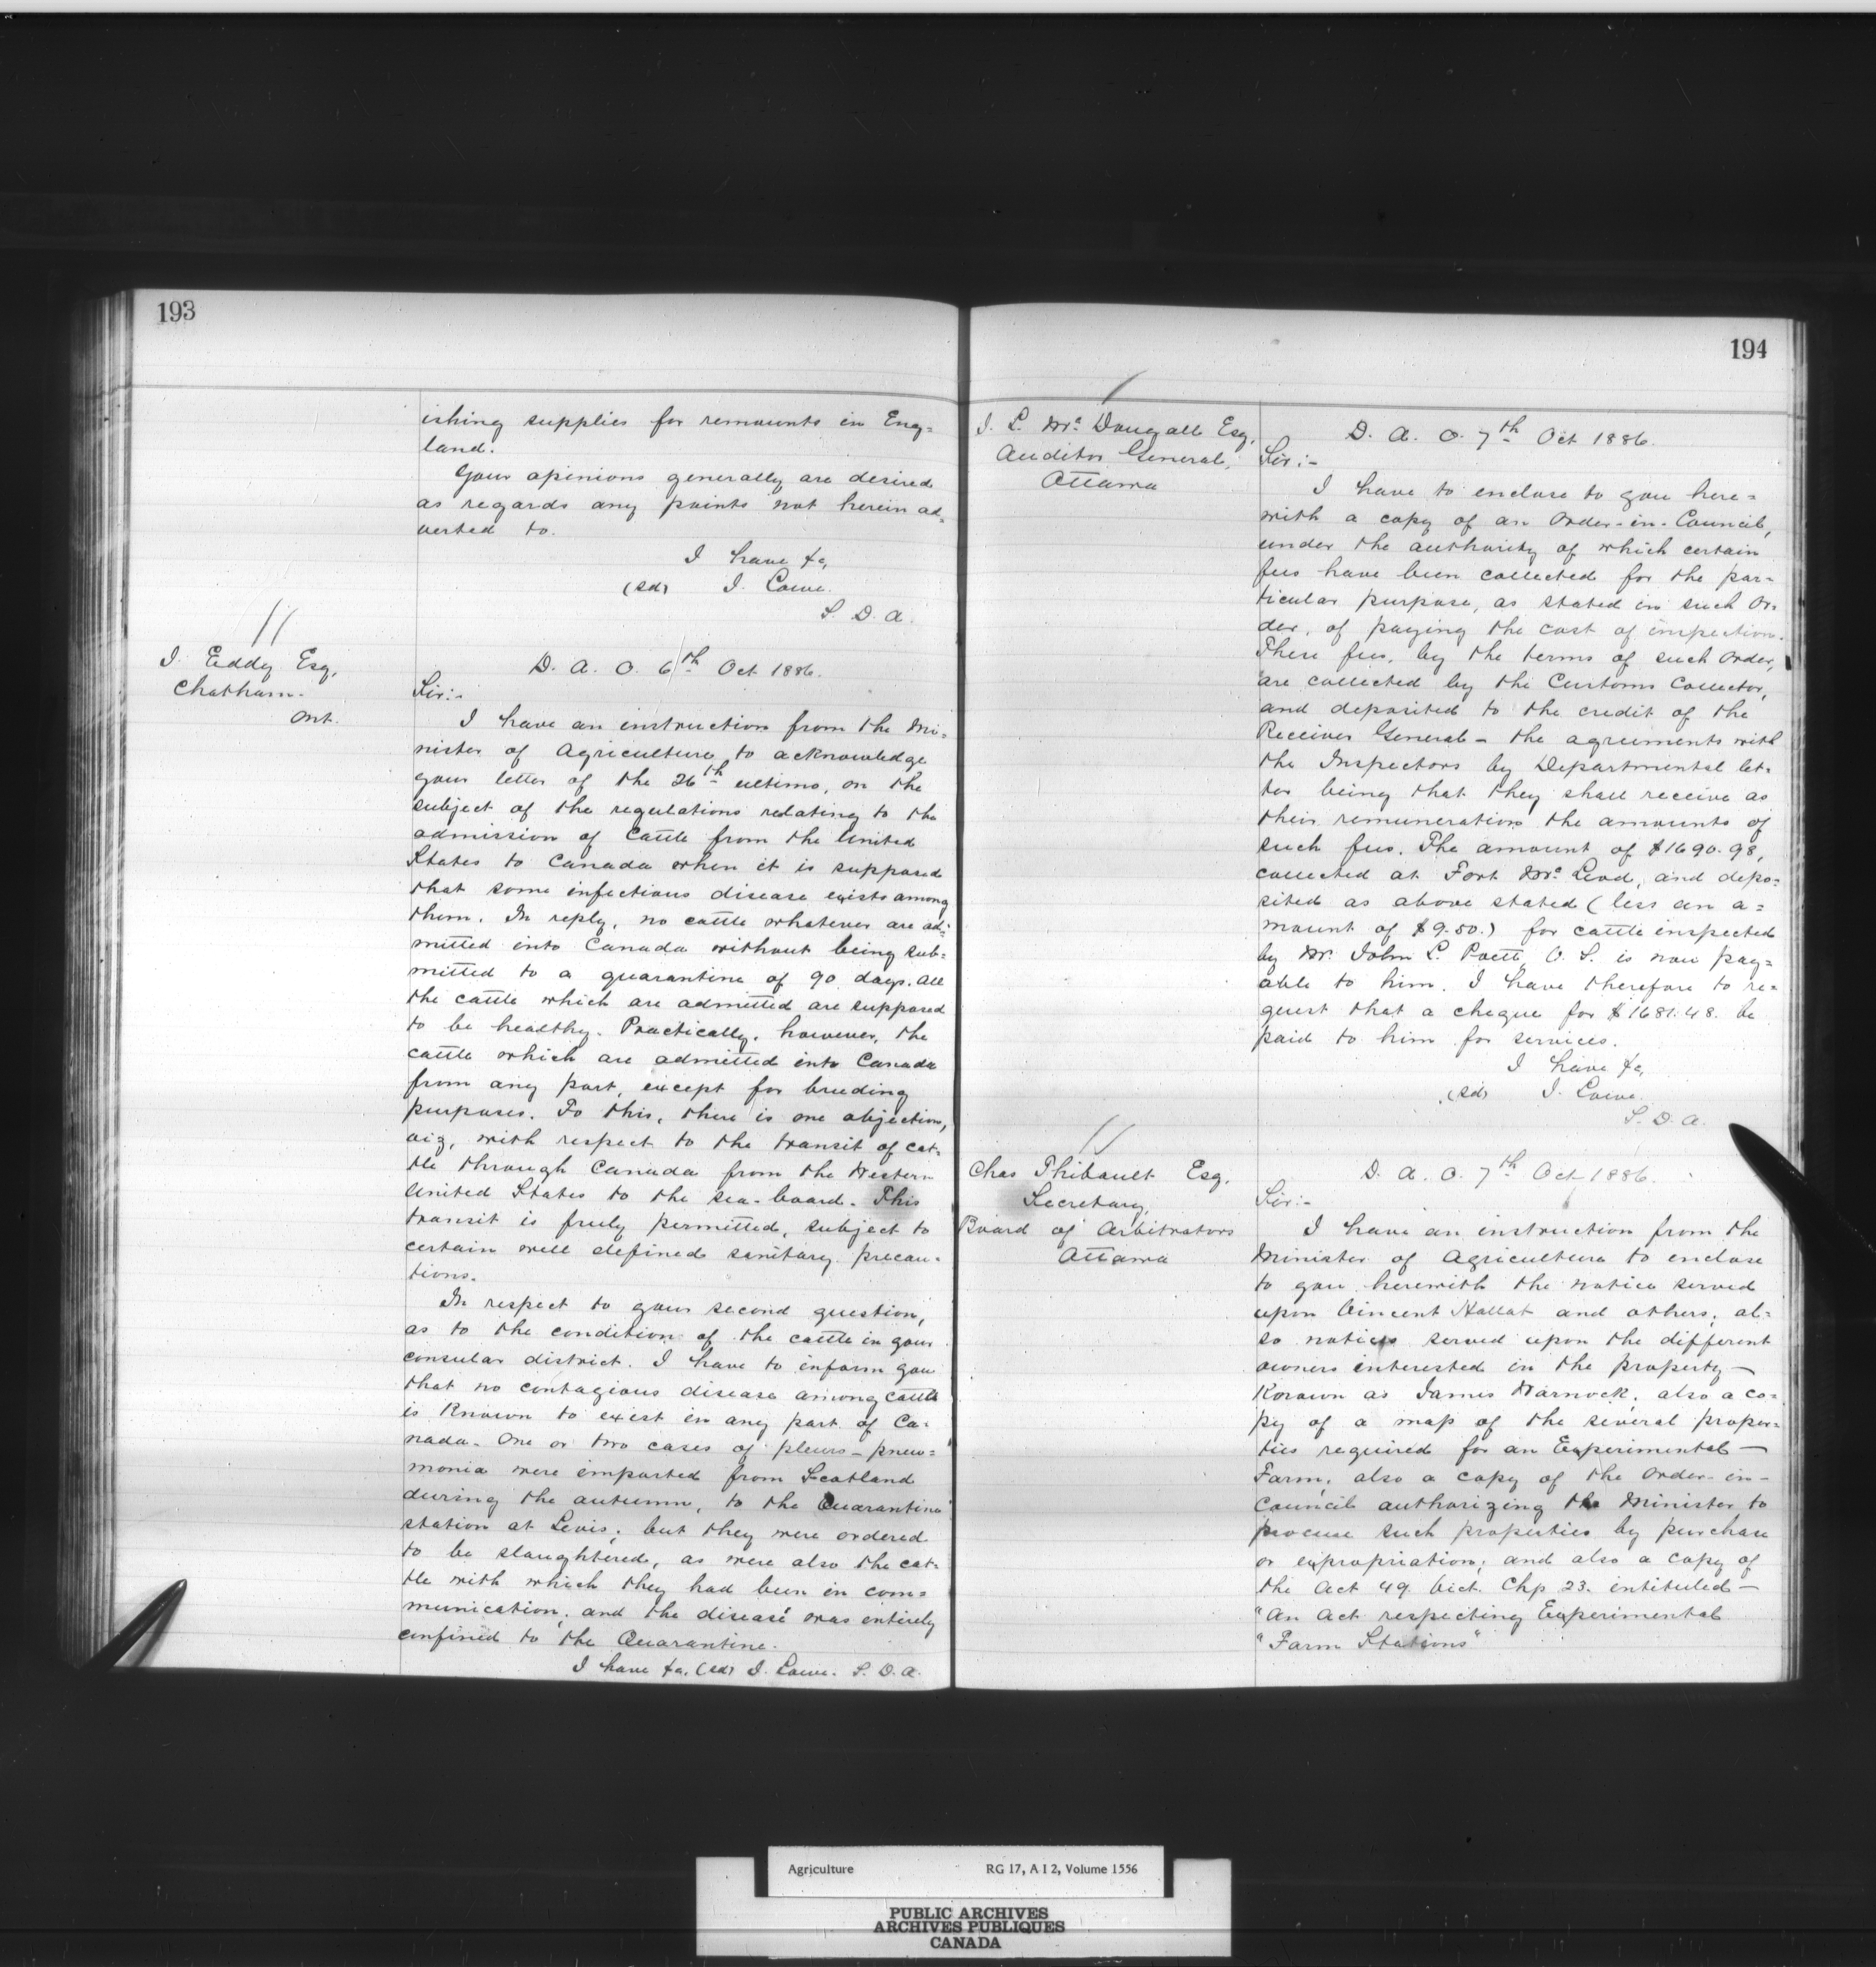 193
ishing supplies for remounts in Eng=
land.
Your opinions generally are desired
as regards any points not herein ad=
verted to.
I have &c,
(sd) J. Lowe.
S. D. A.
J. Eddy Esq,
Chatham.
Ont.
D. A. O. 6th Oct 1886.
Sir:-
I have an instruction from the Mi=
nister of Agriculture to acknowledge
your letter of the 26th ultimo, on the
subject of the regulations relating to the
admission of Cattle from the United
States to Canada when it is supposed
that some infectious disease exists among
them. In reply, no cattle whatever are ad=
mitted into Canada without being sub=
mitted to a quarantine of 90 days. All
the cattle which are admitted are supposed
to be healthy. Practically, however, the
cattle which are admitted into Canada
from any part, except for breeding
purposes. To this, there is one objection,
viz, with respect to the transit of cat=
tle through Canada from the Western
United States to the sea-board. This
transit is freely permitted, subject to
certain well defined sanitary precau=
tions.
In respect to your second question,
as to the condition of the cattle in your
consular district. I have to inform you
that no contagious disease among cattle
is Known to exist in any part of Ca=
nada. One or two cases of pleuro-pneu=
monia were imported from Scotland
during the autumn, to the Quarantine
station at Levis; but they were ordered
to be slaughtered, as were also the cat=
tle with which they had been in com=
munication; and the disease was entirely
confined to the Quarantine.
I have &c, (sd) J. Lowe. S. D. A.
194
J. L. McDougall Esq,
Auditor General,
Ottawa
D. A. O. 7th Oct 1886.
Sir:-
I have to enclose to you here=
with a copy of an Order-in-Council,
under the authority of which certain
fees have been collected for the par=
ticular purpose, as stated in such Or=
der, of paying the cost of inspection.
These fees, by the terms of such Order,
are collected by the Customs Collector,
and deposited to the credit of the
Receiver General - the agreements with
the Inspectors by Departmental let=
ter being that they shall receive as
their remuneration the amounts of
such fees. The amount of $1690.98,
collected at Fort McLeod, and depo=
sited as above stated (less an a=
mount of $9.50.) for cattle inspected
by Mr. John L. Poett, V. S. is now pay=
able to him. I have therefore to re=
quest that a cheque for $1681.48. be
paid to him for services.
I have &c,
(sd) J. Lowe.
S. D. A.
Chas Thibault Esq,
Secretary,
Board of Arbitrators
Ottawa
D. A. O. 7th Oct 1886.
Sir:-
I have an instruction from the
Minister of Agriculture to enclose
to you herewith the notice served
upon Vincent Hallat and others; al=
so notices served upon the different
owners interested in the property—
Known as James Warnock; also a co=
py of a map of the several proper=
ties required for an Experimental—
Farm; also a copy of the Order-in-
Council authorizing the Minister to
procure such properties by purchase
or expropriation; and also a copy of
the Act 49. Vict. Chp 23. intituled—
"An Act respecting Experimental
"Farm Stations"
Agriculture RG 17, A I 2, Volume 1556
PUBLIC ARCHIVES
ARCHIVES PUBLIQUES
CANADA